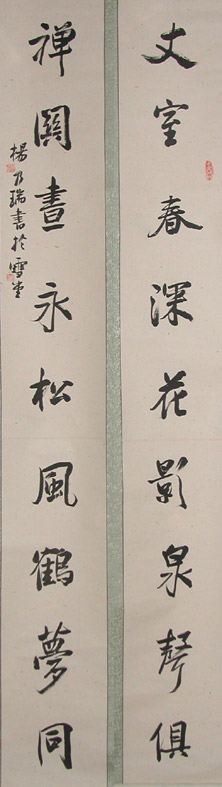 丈室春深花影泉聲俱
禪關晝永松風鶴夢同
楊乃瑞書於雪堂